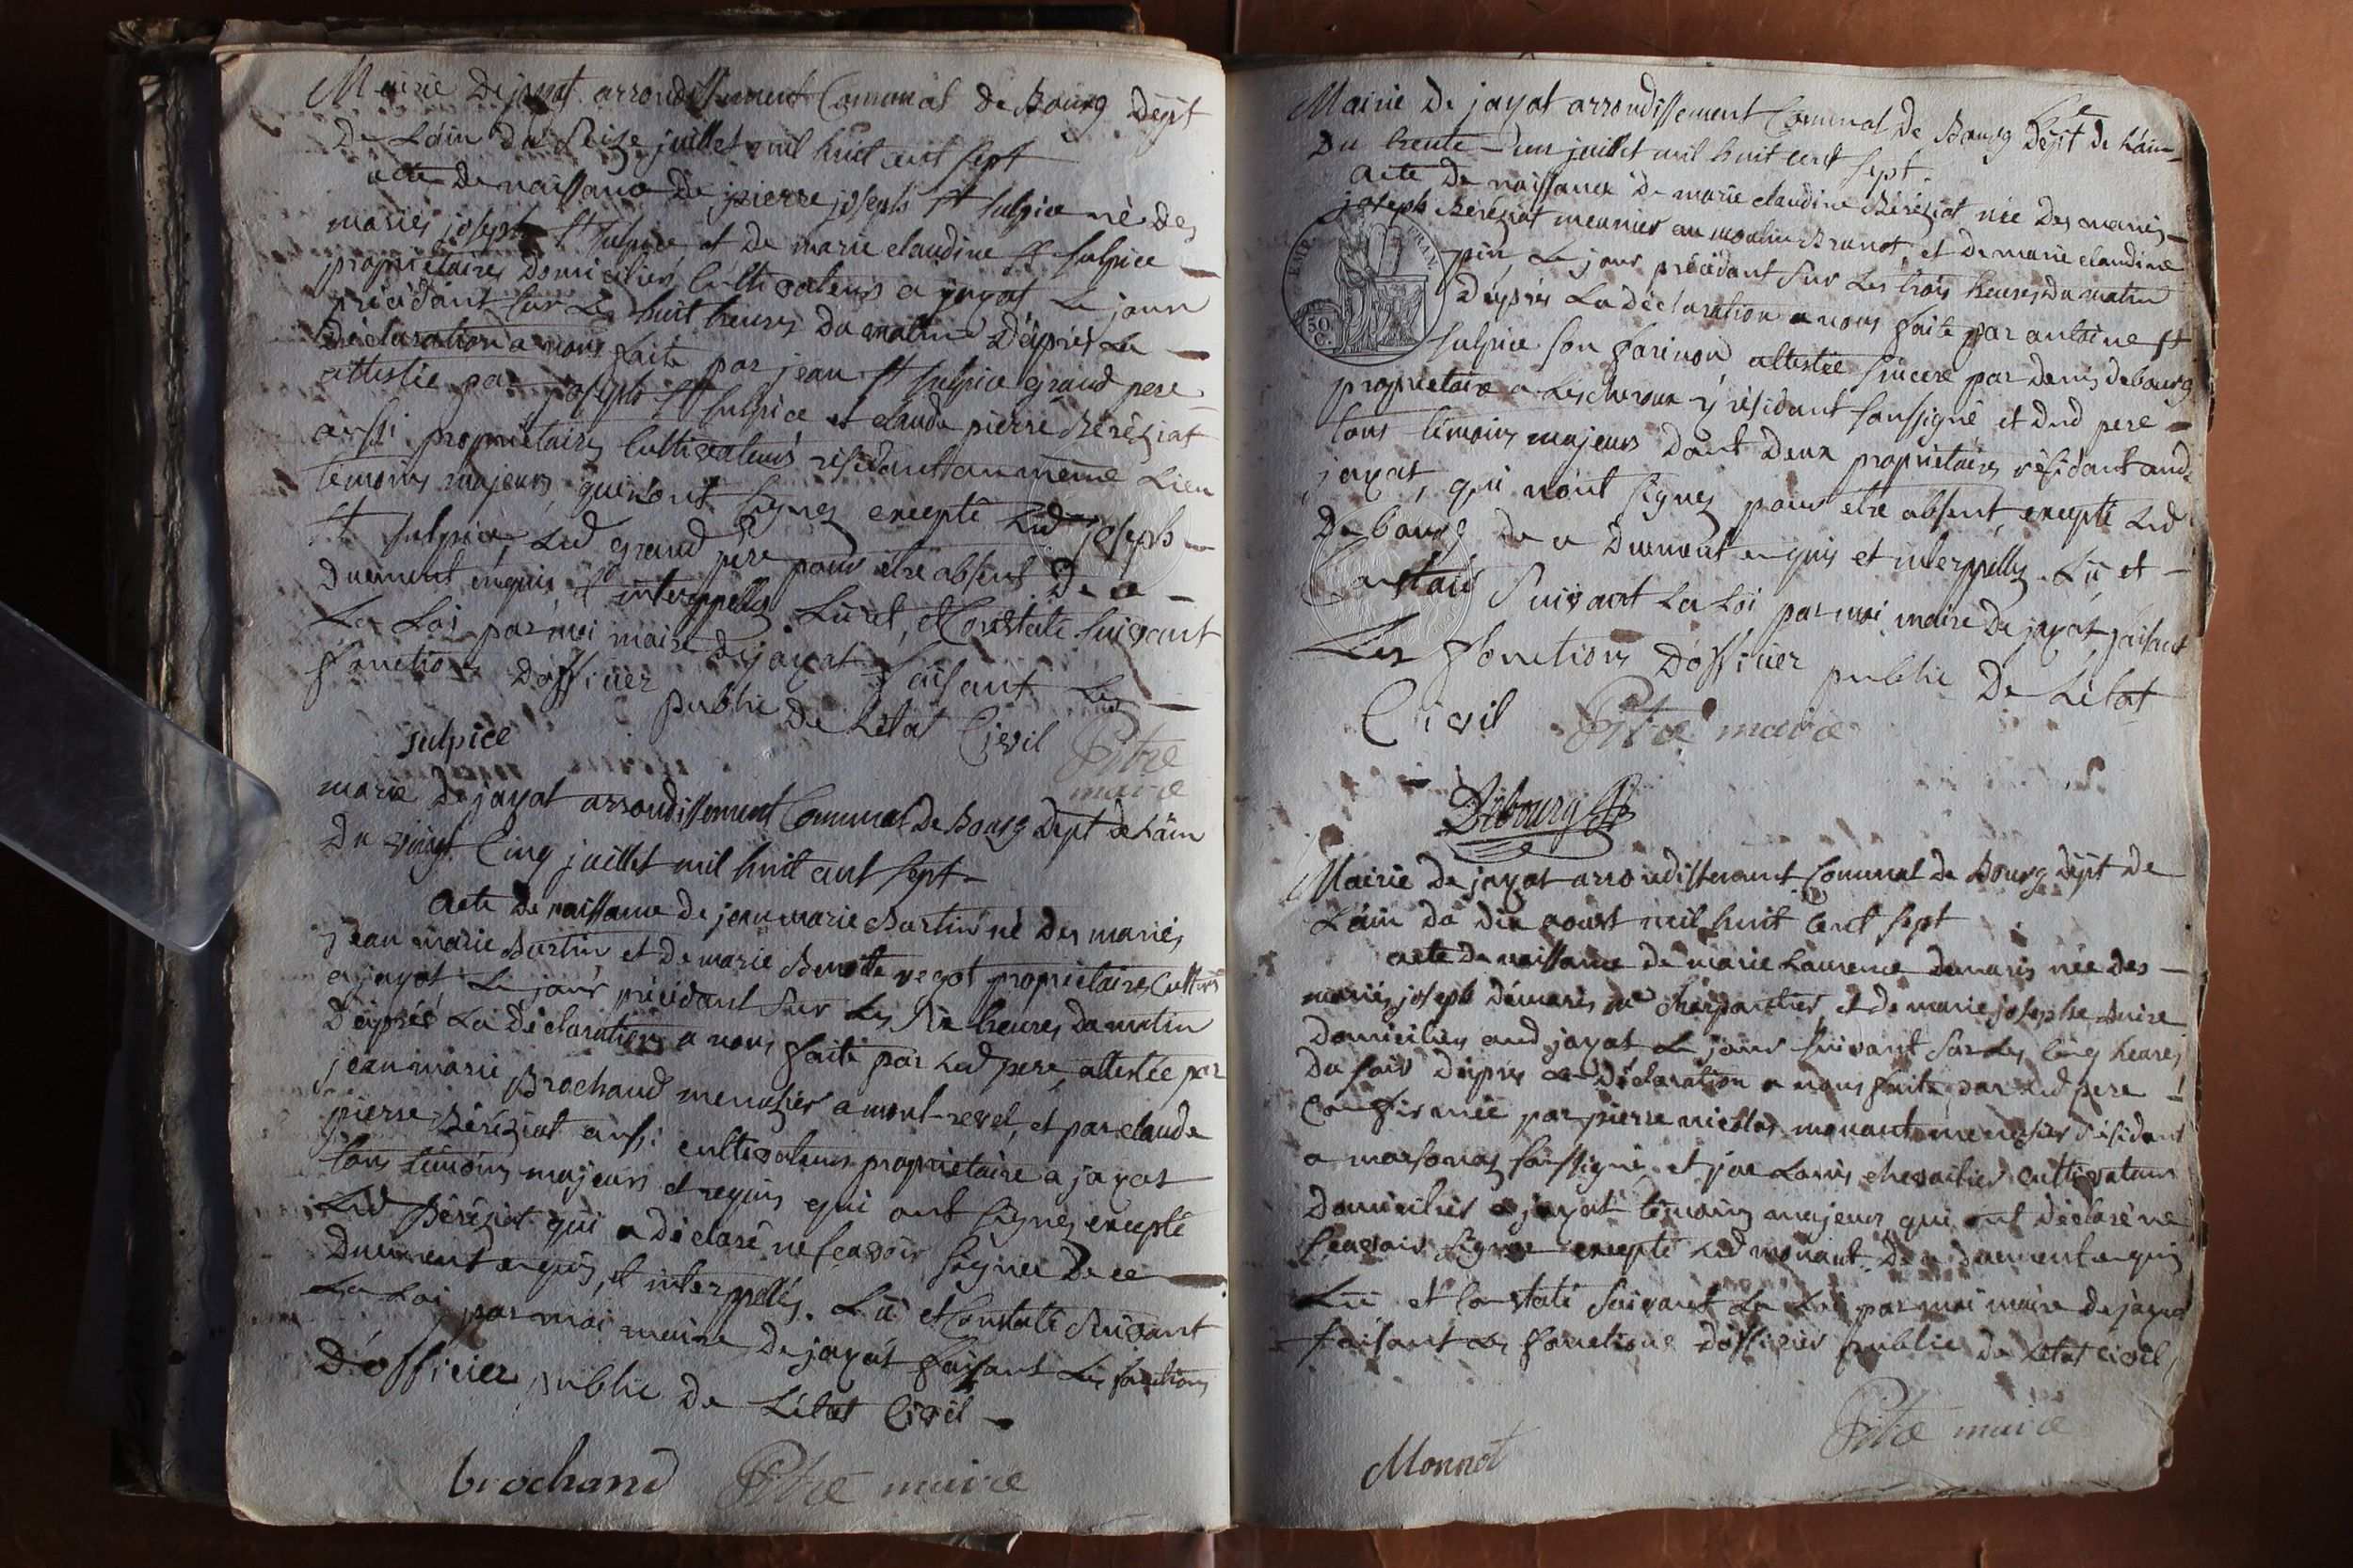 Mairie De jayat arrondissement Communal de Bourg Dept
De Lain du Seize juillet mil huit cent sept
acte De naissance De pierre joseph St Sulpice né des
mariés joseph St Sulpice et de marie claudine St Sulpice
propriétaires domiciliés Cultivateurs a jayat Le jour
précédant sur Les huit heures Du matin D'après La
Déclaration a nous faite par jean St Sulpice grand pere
attestée par joseph St Sulpice et claude pierre Béréziat
aussi propriétaires Cultivateurs résidant au même Lieu
temoins majeurs qui n'ont signés excepté Led joseph
St Sulpice, Led grand père pour etre absent De ce
Duement enquis et interppellés. Lu et, et Constaté suivant
La Loi par moi maire De jayat faisant Les
fonctions D'officier public De L'etat Civil
Sulpice
Pitre
maire
marie De jayat arrondissement Communal De Bourg Dept De Lain
Du vingt Cinq juillet mil huit cent sept
Acte De naissance De jean marie Burtin né Des mariés
jean marie Burtin et De marie Benoite propriétaires Cultivrs
a jayat Le jour précédant sur Les Six heures Du matin
D'après La Déclaration a nous faite par Led pere, attestée par
jean marie Brochand menuzier a mont-revel, et par claude
pierre Béréziat aussi cultivateurs propriétaire a jayat
tous témoins majeurs et requis qui ont signés excepté
Led Béréziat qui a Déclaré ne scavoir signer De ce
Duement enquis, et interppellés. Lu et Constaté Suivant
La Loi par moi maire De jayat faisant Les fonctions
D'officier public De L'état Civil
brochand Pitre maire
Mairie De jayat arrondissement Communal De Bourg Dept de Lain
Du trente-un juillet mil huit cent sept.
acte De naissance De marie claudine Béréziat née Des mariés
joseph Béréziat meunier au moulin Brunet, et De marie claudine
EMP. FRAN.
50 C.
pin Le jour précédant Sur Les trois heures Du matin
D'après La Déclaration a nous faite par antoine St
Sulpice son attestée sincere par Denis Debourg
propriétaire a Lescheroux y résidant soussigné et Dud pere
tous témoins majeurs Dont Deux propriétaires résidant aud
jayat, qui n'ont signés pour etre absent, excepté Led
De bourg De ce Duement enquis et interppellés. Lu et
Constaté Suivant La Loi par moi maire De jayat faisant
Les fonctions D'officier public De L'état
Civil Pitre maire
Debourg
Mairie De jayat arrondissement Communal de Bourg Dept De
Lain Du Dix aoust mil huit cent sept
acte De naissance De marie Laurence Demaris née Des
mariés joseph Démaris charpantier, et De marie josephe Buire
Domiciliés aud jayat Le jour suivant sur Les Cinq heures
Du soir D'après La Déclaration a nous faite par Led pere
Confirmée par pierre nicolas monant menuzier résidant
a marsonas soussigné, et par Louis chevailier cultivateur
Domiciliés a jayat témoins majeurs qui ont Déclaré ne
scavoir signer excepté Led monant. De ce Duement enquis
Lu et Constaté Suivant La Loi par moi maire De jayat
faisant Les fonctions D'officier public De L'etat Civil
Pitre maire
Monnot